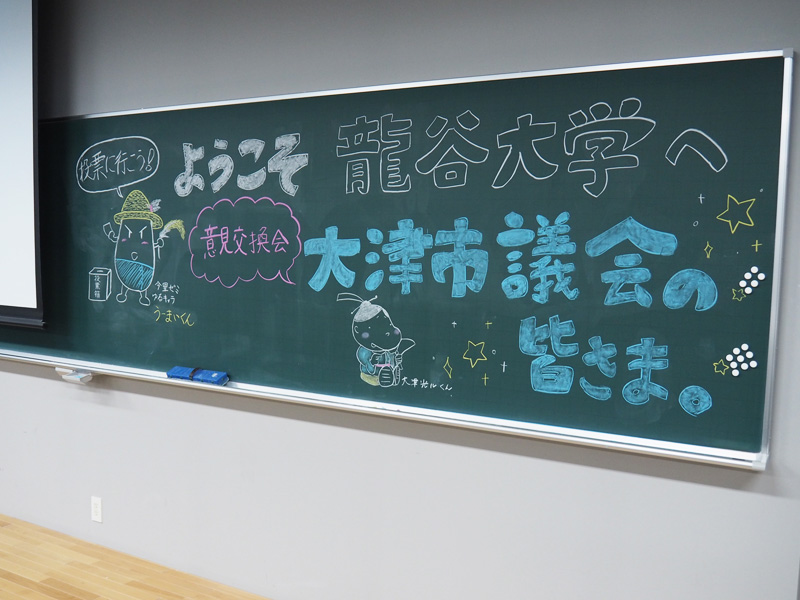 投票に行こう!
ようこそ 龍谷大学へ
意見交換会
大津市議会の
皆さま。
投票箱
今里ゼミ
うーまいくん
大津光ルくん